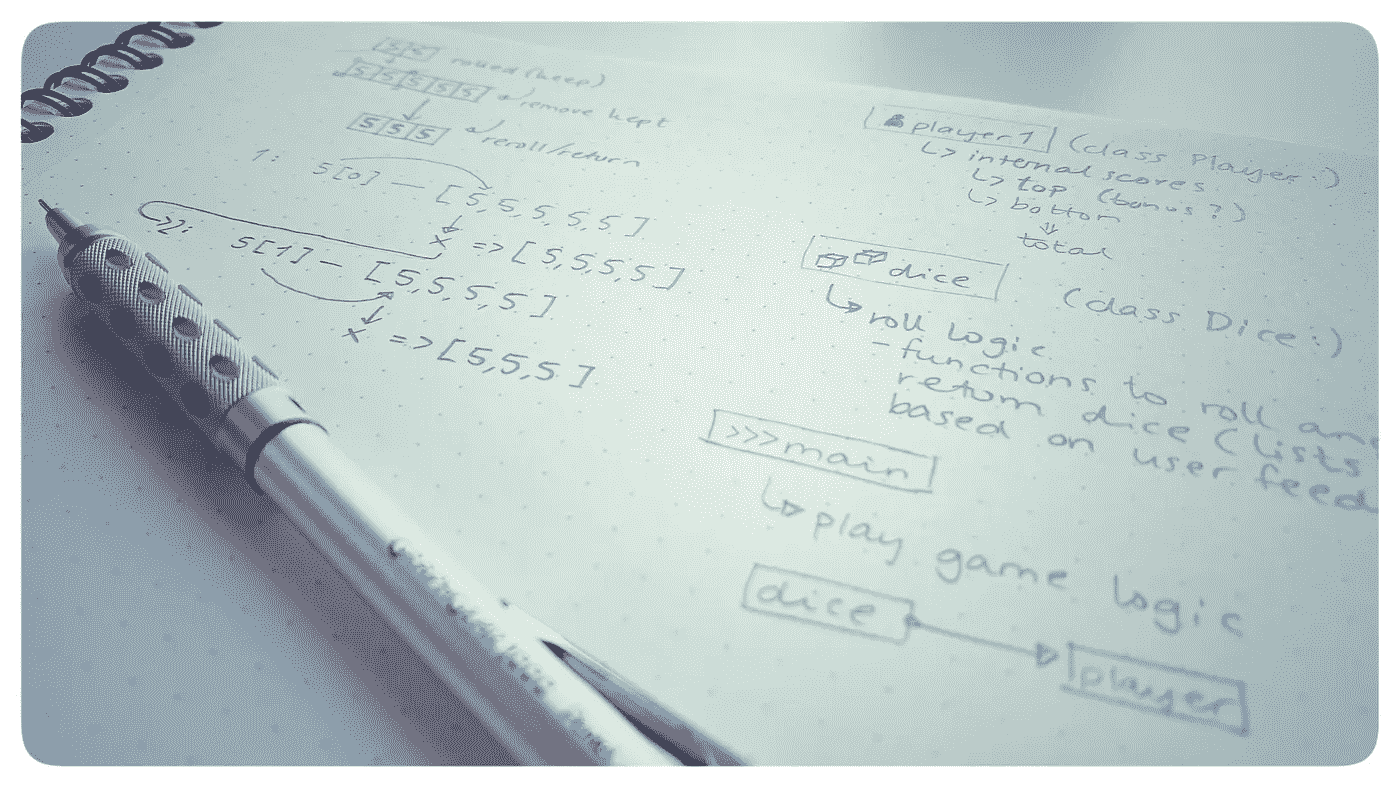 5 5 rolled (keep)
5 5 5 5 5 remove kept
5 5 5 reroll/return
1: 5[0] — [5,5,5,5,5]
x => [5,5,5,5]
2: 5[1] — [5,5,5,5]
x => [5,5,5]
player1 (class Player:)
internal scores
top (bonus?)
bottom
total
dice (class Dice:)
roll logic
- functions to roll and
return dice (lists
based on user feed
>>>main
play game logic
dice
player